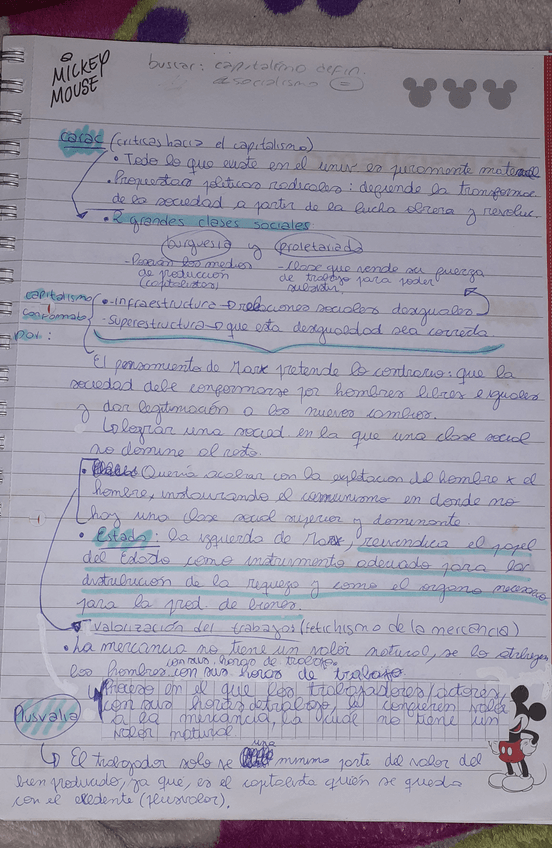 MICKEY
MOUSE
buscar: capitalismo defin.
socialismo
carac (críticas hacia el capitalismo)
• Todo lo que existe en el univ es puramente material
• Propuestas políticas radicales: defiende la transformac.
de la sociedad a partir de la lucha obrera y revoluc.
• 2 grandes clases sociales
burguesia y proletariado
- Poseen los medios
de producción
(capitalistas)
- Clase que vende su fuerza
de trabajo para poder
subsistir.
capitalismo
conformado
por:
• - infraestructura → relaciones sociales desiguales
- Superestructura → que esta desigualdad sea correcta.
El pensamiento de Marx pretende lo contrario: que la
sociedad debe conformarse por hombres libres e iguales
y dar legitimación a los nuevos cambios.
↳ lograr una socied en la que una clase social
no domine al resto.
• Quería acabar con la explotación del hombre x el
hombre, instaurando el comunismo en donde no
hay una clase social superior y dominante.
• Estado: la izquierda de Marx, reivindica el papel
del Estado como instrumento adecuado para las
distribución de la riqueza y como el organo necesario
para la prod. de bienes.
Valorización del trabajos (fetichismo de la mercancia)
• La mercancia no tiene un valor natural, se lo atribuyen
con sus horas de trabajo.
los hombres con sus horas de trabajo
Plusvalia
Proceso en el que los trabajadores/actores,
con sus horas de trabajo, le confieren valor
a la mercancia, la cual no tiene un
valor natural.
↳ El trabajador solo se una minima parte del valor del
bien producido, ya que, es el capitalista quién se queda
con el exedente (plusvalor).